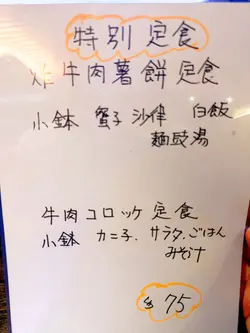 特別定食
炸牛肉薯餅定食
小鉢 蟹子沙律 白飯
麵豉湯
牛肉コロッケ定食
小鉢 カニ子.サラダ.ごはん
みそ汁
$75